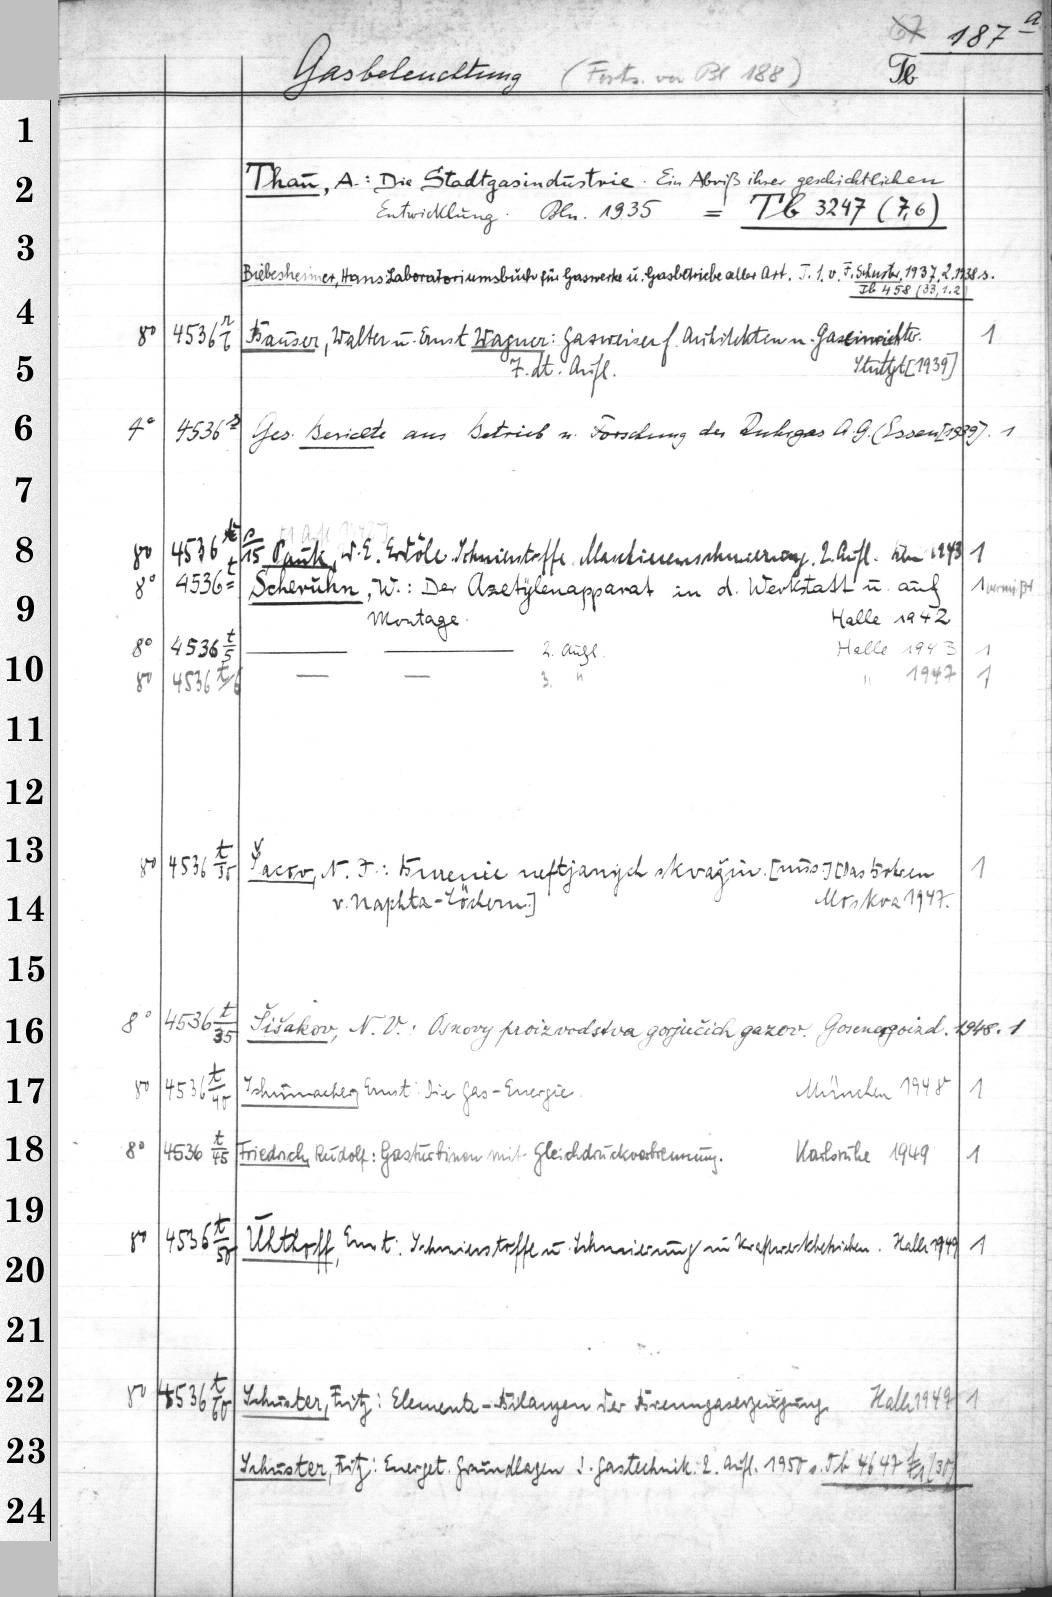 67 187 a
Gasbeleuchtung (Forts. von Bl 188) Tb
1
2
3
4
5
6
7
8
9
10
11
12
13
14
15
16
17
18
19
20
21
22
23
24
Thau, A.: Die Stadtgasindustrie. Ein Abriß ihrer geschichtlichen
Entwicklung. Bln. 1935 = Tb 3247 (7,6)
Biebesheimer, Hans: Laboratoriumsbuch für Gaswerke u. Gasbetriebe aller Art. T. 1. v. F. Schuster, 1937, 2. 1938 s.
Tb 458 (33, 1.2)
8° 4536 r/6 Hauser, Walter u. Ernst Wagner: Gasweiser f. Architekten u. Gaseinrichter. 1
7. dt. Aufl. Stuttgt [1939]
4° 4536 s Ges. Berichte aus Betrieb u. Forschung der Ruhrgas A.G. (Essen [1939]. 1
8° 4536 s/15 Pauk, W. E. Erdöle. Schmierstoffe. Maschinenschmierung. 2. Aufl. 1943 1
8° 4536 t Scheruhn, W.: Der Azetylenapparat in d. Werkstatt u. auf 1 vermißt
Montage. Halle 1942
8° 4536 t/5 — — 2. Aufl. Halle 1943 1
8° 4536 t/6 — — 3. " " 1947 1
8° 4536 t/30 Šacov, N. I.: Burenie neftjanych skvažin. [russ.] [Das Bohren 1
v. Naphta-Löchern.] Moskva 1947.
8° 4536 t/35 Šišakov, N. V.: Osnovy proizvodstva gorjučich gazov. Gosenergoizd. 1948. 1
8° 4536 t/40 Schumacher, Ernst: Die Gas-Energie. München 1948 1
8° 4536 t/45 Friedrich, Rudolf: Gasturbinen mit Gleichdruckverbrennung. Karlsruhe 1949 1
8° 4536 t/50 Uhthoff, Ernst: Schmierstoffe u. Schmierung in Kraftwerkbetrieben. Halle 1949 1
8° 4536 t/60 Schuster, Fritz: Elementar-Bilanzen der Brenngaserzeugung. Halle 1949 1
Schuster, Fritz: Energet. Grundlagen d. Gastechnik. 2. Aufl. 1950 s. Tb 4647 t/1 (30)